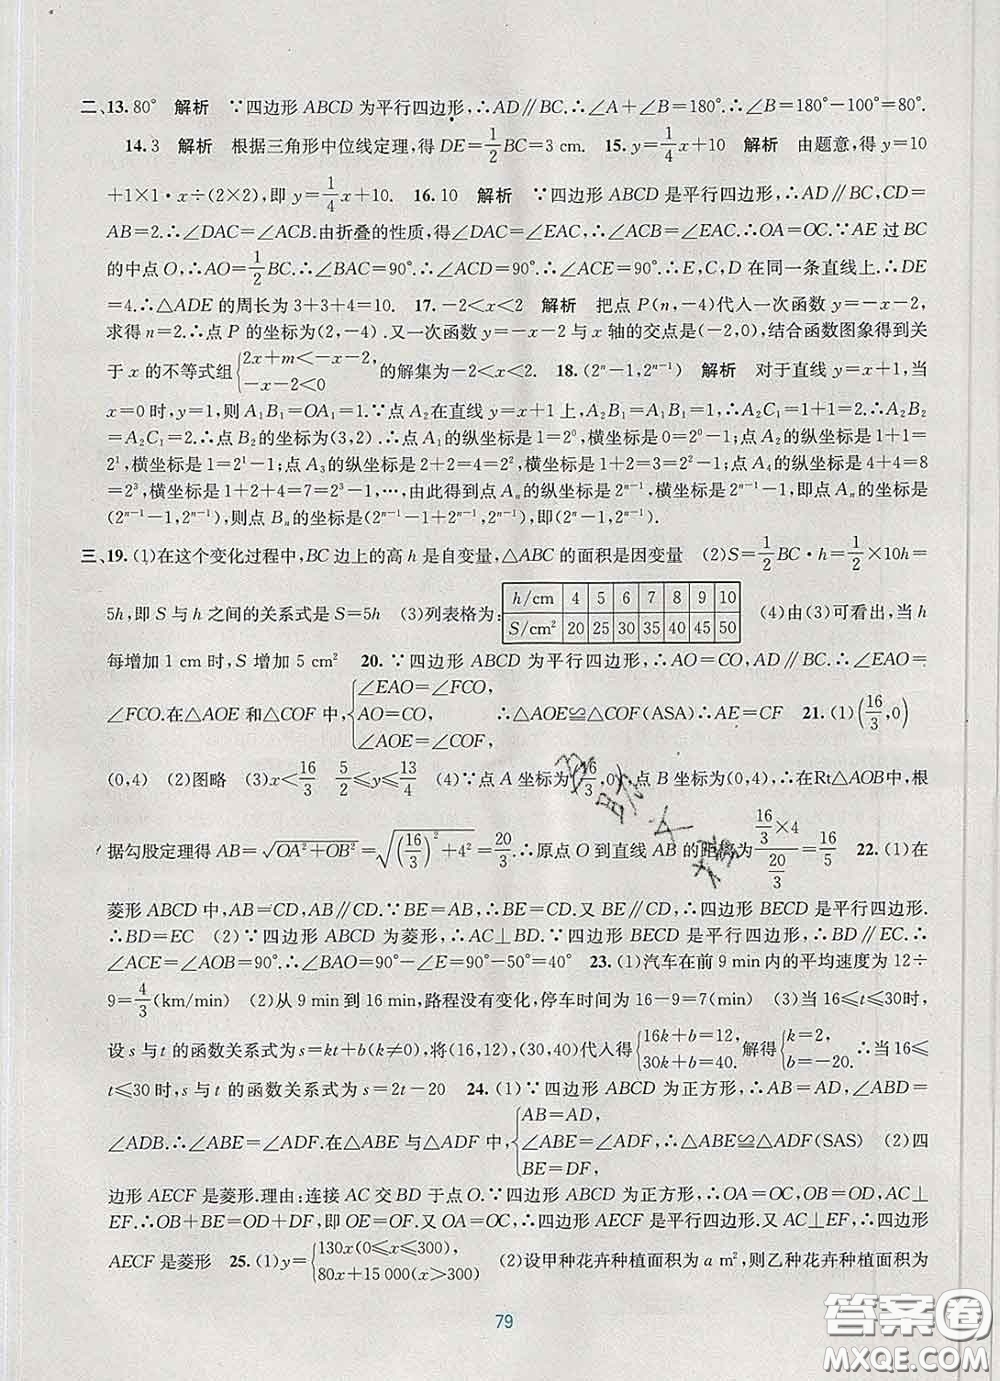 二、13.80° 解析 ∵四边形ABCD为平行四边形,∴AD∥BC.∴∠A+∠B=180°.∴∠B=180°-100°=80°.
14.3 解析 根据三角形中位线定理,得DE=1/2BC=3 cm. 15.y=1/4x+10 解析 由题意,得y=10
+1×1·x÷(2×2),即y=1/4x+10. 16.10 解析 ∵四边形ABCD是平行四边形,∴AD∥BC,CD=
AB=2.∴∠DAC=∠ACB.由折叠的性质,得∠DAC=∠EAC,∴∠EAC=∠ACB.∴OA=OC.∵AE过BC
的中点O,∴AO=1/2BC.∴∠BAC=90°.∴∠ACD=90°.∴∠ACE=90°.∴E,C,D在同一条直线上,∴DE
=4.∴△ADE的周长为3+3+4=10. 17.-2<x<2 解析 把点P(n,-4)代入一次函数y=-x-2,
求得n=2.∴点P的坐标为(2,-4).又一次函数y=-x-2与x轴的交点是(-2,0),结合函数图象得到关
于x的不等式组{2x+m<-x-2, -x-2<0 的解集为-2<x<2. 18.(2ⁿ-1,2ⁿ⁻¹) 解析 对于直线y=x+1,当
x=0时,y=1,则A₁B₁=OA₁=1.∵点A₂在直线y=x+1上,A₂B₁=A₂C₁=1+1=2.∴A₂B₂
=A₂C₁=2.∴点B₂的坐标为(3,2).∴点A₁的纵坐标是1=2⁰,横坐标是0=2⁰-1;点A₂的纵坐标是1+1=
2¹,横坐标是1=2¹-1;点A₃的纵坐标是2+2=4=2²,横坐标是1+2=3=2²-1;点A₄的纵坐标是4+4=8
=2³,横坐标是1+2+4=7=2³-1,…,由此得到点Aₙ的纵坐标是2ⁿ⁻¹,横坐标是2ⁿ⁻¹-1,即点Aₙ的坐标是
(2ⁿ⁻¹-1,2ⁿ⁻¹),则点Bₙ的坐标是(2ⁿ⁻¹-1+2ⁿ⁻¹,2ⁿ⁻¹),即(2ⁿ-1,2ⁿ⁻¹).
三、19.(1)在这个变化过程中,BC边上的高h是自变量,△ABC的面积是因变量 (2)S=1/2BC·h=1/2×10h=
5h,即S与h之间的关系式是S=5h (3)列表格为: h/cm 4 5 6 7 8 9 10
S/cm² 20 25 30 35 40 45 50 (4)由(3)可看出,当h
每增加1 cm时,S增加5 cm² 20.∵四边形ABCD为平行四边形,∴AO=CO,AD∥BC.∴∠EAO=
∠FCO.在△AOE和△COF中,{∠EAO=∠FCO, AO=CO, ∠AOE=∠COF, ∴△AOE≌△COF(ASA)∴AE=CF 21.(1)(16/3,0)
(0,4) (2)图略 (3)x<16/3 5/2≤y≤13/4 (4)∵点A坐标为(16/3,0),点B坐标为(0,4),∴在Rt△AOB中,根
据勾股定理得AB=√(OA²+OB²)=√((16/3)²+4²)=20/3.∴原点O到直线AB的距离为(16/3×4)/(20/3)=16/5 22.(1)在
菱形ABCD中,AB=CD,AB∥CD.∵BE=AB,∴BE=CD.又BE∥CD,∴四边形BECD是平行四边形.
∴BD=EC (2)∵四边形ABCD为菱形,∴AC⊥BD.∵四边形BECD是平行四边形,∴BD∥EC.∴
∠ACE=∠AOB=90°.∴∠BAO=90°-∠E=90°-50°=40° 23.(1)汽车在前9 min内的平均速度为12÷
9=4/3(km/min) (2)从9 min到16 min,路程没有变化,停车时间为16-9=7(min) (3)当16≤t≤30时,
设s与t的函数关系式为s=kt+b(k≠0),将(16,12),(30,40)代入得{16k+b=12, 30k+b=40. 解得{k=2, b=-20. ∴当16≤
t≤30时,s与t的函数关系式为s=2t-20 24.(1)∵四边形ABCD为正方形,∴AB=AD,∠ABD=
∠ADB.∴∠ABE=∠ADF.在△ABE与△ADF中,{AB=AD, ∠ABE=∠ADF, BE=DF, ∴△ABE≌△ADF(SAS) (2)四
边形AECF是菱形.理由:连接AC交BD于点O.∵四边形ABCD为正方形,∴OA=OC,OB=OD,AC⊥
EF.∴OB+BE=OD+DF,即OE=OF.又OA=OC,∴四边形AECF是平行四边形.又AC⊥EF,∴四边形
AECF是菱形 25.(1)y={130x(0≤x≤300), 80x+15 000(x>300) (2)设甲种花卉种植面积为a m²,则乙种花卉种植面积为
79
答案圈
MXQE.COM